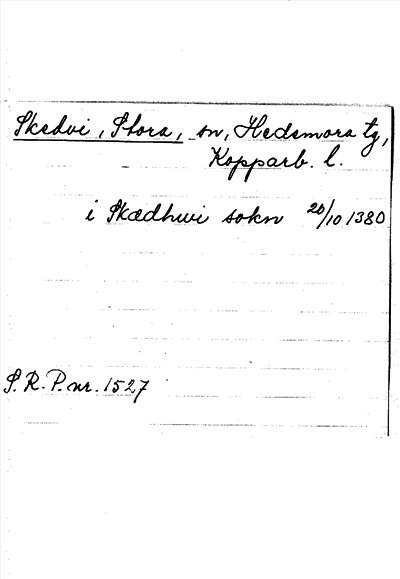 Skedvi, Stora, sn, Hedemora tg,
Kopparb. l.
i Skædhwi sokn 20/10 1380
S.R.P. nr. 1527